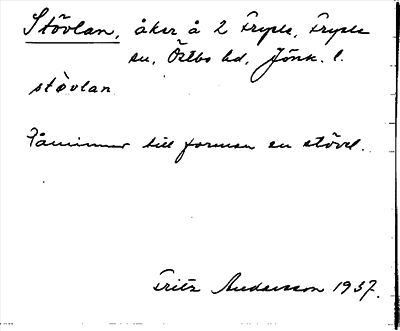 Stövlan, åker å 2 Fryele, Fryele
sn, Östbo hd, Jönk. l.
stövlan
Påminner till formen en stövel.
Fritz Andersson 1937.